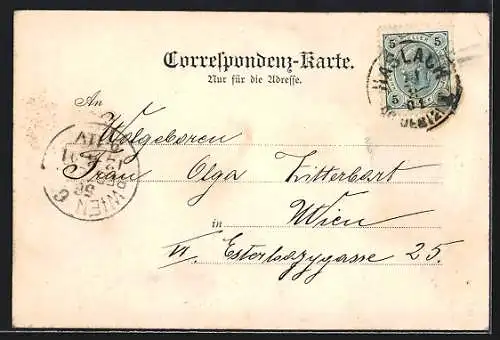 Correspondenz-Karte.
Nur für die Adresse.
5 HELLER 5
5 5
HASLACH
04
An
Wolgeboren
Frau Olga Zitterbart
in Wien
VI. Esterhazygasse 25.
WIEN